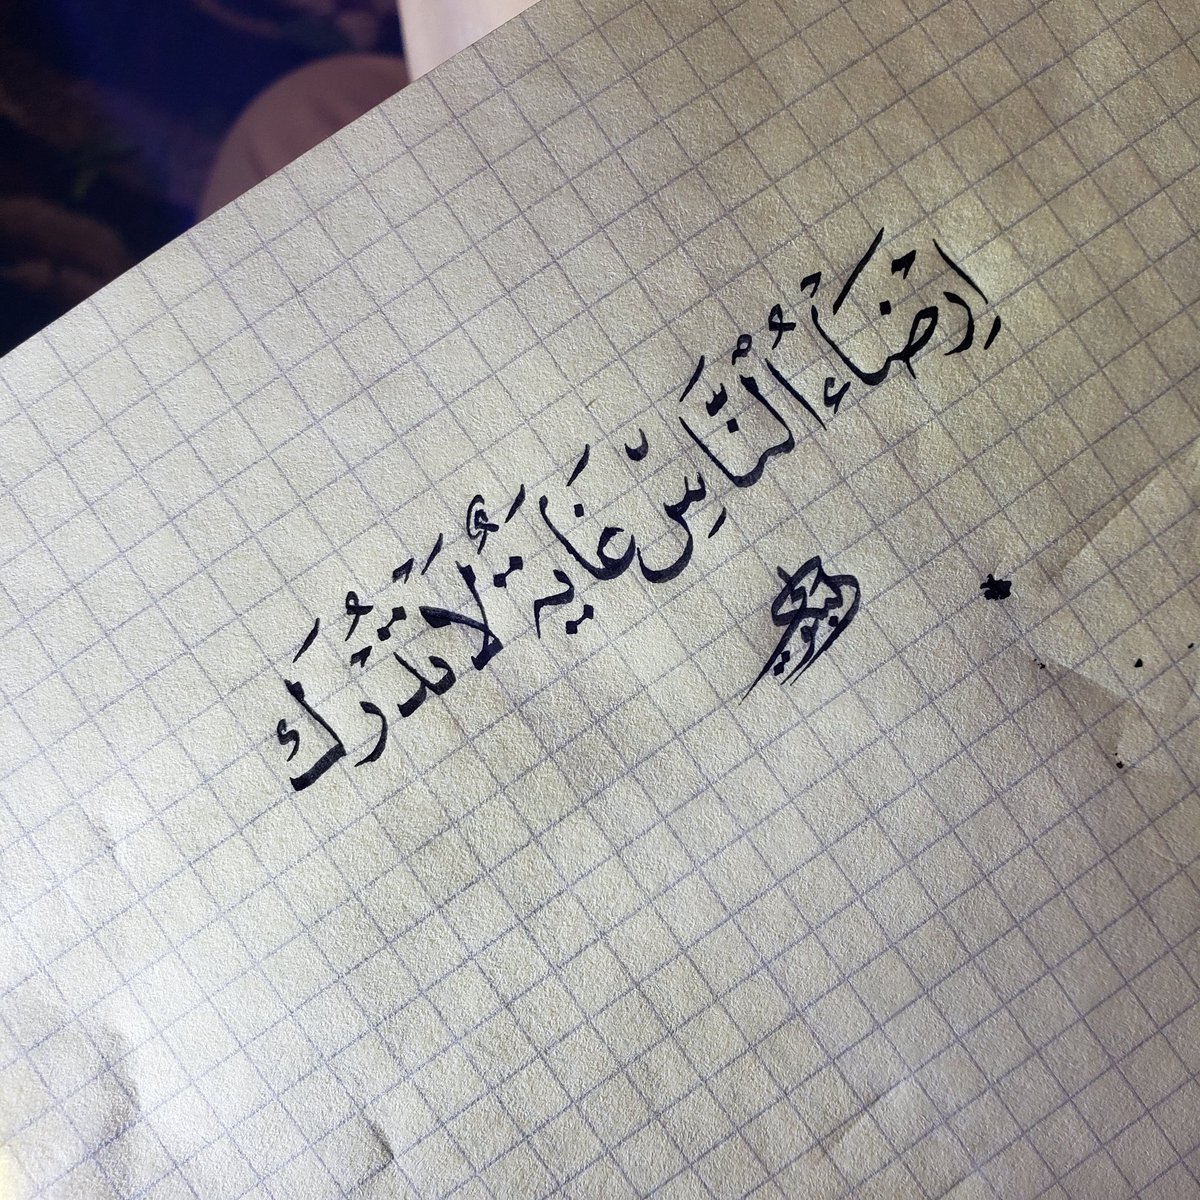 إرضَاءُ النَّاسِ غَايَةٌ لَا تُدْرَكَ